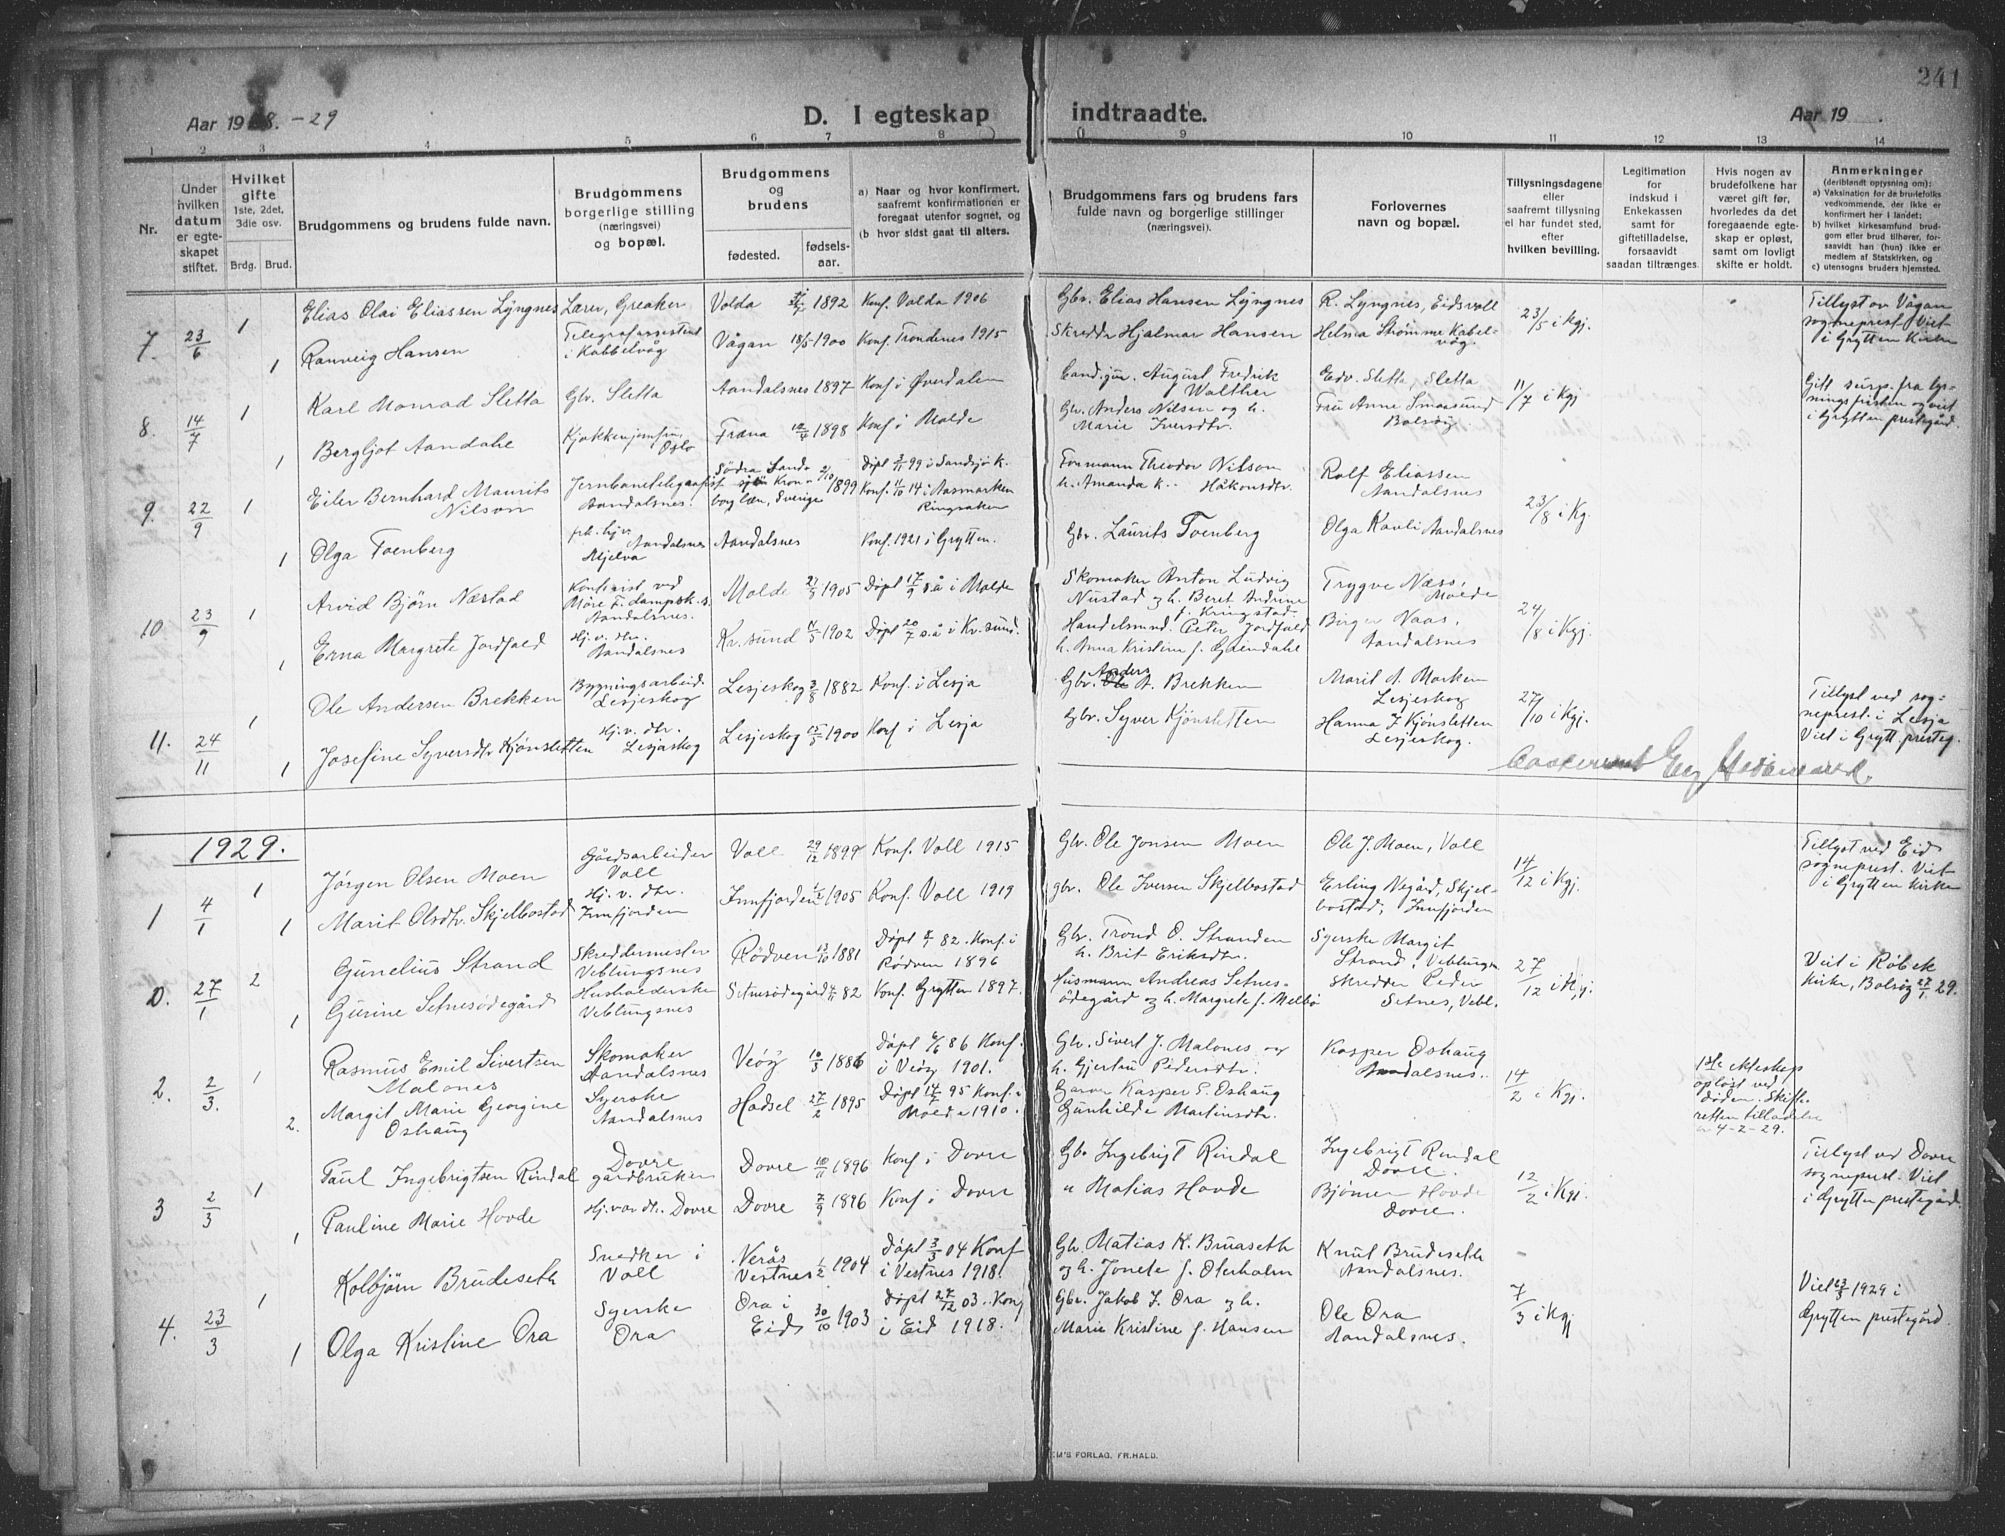 241
Aar 1928. -29
D. I egteskap indtraadte.
Aar 19 .
1 2 3 4 5 6 7 8 9 10 11 12 13 14
Nr.
Under hvilken datum er egteskapet stiftet.
Hvilket gifte 1ste, 2det, 3die osv.
Brdg. Brud.
Brudgommens og brudens fulde navn.
Brudgommens borgerlige stilling (næringsvei) og bopæl.
Brudgommens og brudens
fødested. fødsels-aar.
a) Naar og hvor konfirmert, saafremt konfirmationen er foregaat utenfor sognet, og
(b hvor sidst gaat til alters.
Brudgommens fars og brudens fars fulde navn og borgerlige stillinger (næringsvei).
Forlovernes navn og bopæl.
Tillysningsdagene eller saafremt tillysning ei har fundet sted, efter hvilken bevilling.
Legitimation for indskud i Enkekassen samt for giftetilladelse, forsaavidt saadan tiltrænges
Hvis nogen av brudefolkene har været gift før, hvorledes da det foregaaende egteskap er opløst, samt om lovligt skifte er holdt.
Anmerkninger (deriblandt oplysning om):
a) Vaksination for de brudefolks vedkommende, der ikke er konfirmert her i landet;
b) hvilket kirkesamfund brudgom eller brud tilhører, forsaavidt han (hun) ikke er medlem af Statskirken, og
c) utensogns bruders hjemsted.
7. 23/6 1 Elias Olai Eliassen Lyngnes Lærer, Greaker Volda 1892 Konf. Volda 1906 Gbr. Elias Hansen Lyngnes R. Lyngnes, Eidsvoll 23/5 i Kgj. Tillyst av Vågan sogneprest. Viet i Grytten Kirke
1 Ranveig Hansen Telegrafassistent i Kabbelvåg Vågan 18/5 1900 Konf. Trondenes 1915 Skredder Hjalmar Hansen Helma Strømme Kabelvåg
8. 14/7 1 Karl Monrad Sletta Gbr. Sletta Aandalsnes 1897 Konf i Øverdalen Cand. jur. August Fredrik Walther Edv. Sletta, Sletta 11/7 i Kgj
1 Bergljot Aandahl Kjøkkenjomfru, Oslo Fræna 12/4 1898 Konf i Molde Gbr. Anders Nilsen og h. Marie Iversdtr. Fru Anne Smaasund Bolsøy. i Grytten prestegård.
9. 22/9 1 Eiler Bernhard Maurits Nilson Jernbanetelegrafist Aandalsnes. Södra Kronoborg län, Sverige 2/10 1899 Døpt 3/11 99 i Sandsjö k. Konf. 11/10 14 i Aasmarken Ringsaker Formann Theodor Nilson h. Amanda K. Håkonsdtr. Rolf Eliassen Aandalsnes 23/8 i Kg.
1 Olga Toenberg Aandalsnes Mjelva Aandalsnes Konf. 1921 i Grytten. Gbr. Laurits Toenberg Olga Kavli Aandalsnes
10 23/9 1 Arvid Bjørn Næstad Kontorist ved Møre F. dampsk.s. Aandalsnes. Molde 21/8 1905 Døpt 17/9 s.å i Molde Skomaker Anton Ludvig Nustad og h. Beret Andrine f. Kringstad Trygve Næss, Molde 24/8 i Kgj.
1 Erna Margrete Jordfald Hj. v. dtr. Aandalsnes Kr.sund 11/5 1902 Døpt 20/7 s.å i Kr.sund. Handelsmd. Peter Jordfald h. Anna Kristine f. Grindahl Birger Naas, Aandalsnes
11. 24/11 1 Ole Andersen Brekken Bygningsarbeid. Lesjeskog Lesjeskog 3/8 1882 Konf. i Lesja Gbr. Anders A. Brekken Marit A. Morken Lesjeskog 27/10 i Kgj. Tillyst ved sogneprest. i Lesja Viet i Grytt. presteg.
1 Josefine Syversdtr Kjønsletten Hj. v. dtr. Lesjaskog Lesjeskog 15/5 1900 Konf i Lesja Gbr. Syver Kjønsletten Hanna J Kjønsletten Lesjeskog.
1929.
1 4/1 1 Jørgen Olsen Moen Gårdsarbeider Voll Voll 29/12 1899 Konf. Voll 1915 Gbr. Ole Jonsen Moen Ole J. Moen, Voll 14/12 i Kgj. Tillyst ved Eid sogneprest. Viet i Grytten Kirke
1 Marit Olsdtr. Skjelbostad Hj. v. dtr. Innfjorden Innfjorden 1905 Konf. Voll 1919 gbr. Ole Iversen Skjelbostad Erling Negård, Skjelbostad, Innfjorden
0. 27/1 2 Gunelius Strand Skreddermester Veblungsnes Rødven 13/10 1881 Døpt 8/1 82. Konf. i Rødven 1896 Gbr. Trond O. Stranden h. Brit Eriksdtr. Syerske Margit Strand, Veblungsn. 27/12 i Kgj. Viet i Røbek Kirke, Bolsøy 27/1 29.
1 Gurine Setnesødegård Husholderske Veblungsnes Setnesødegård 4/11 82 Konf. Grytten 1897. Husmann Andreas Setnesødegård og h. Margrete f. Melbø skredder Peder Setnes, Vebl.
2. 2/3. 1 Rasmus Emil Sivertsen Malones Skomaker Aandalsnes Veøy 10/3 1886 Døpt 6/6 86 Konf. i Veøy 1901. Gbr. Sivert J. Malones og h. Gjertru Pedersdtr. Kasper Oshaug Aandalsnes. 14/2 i Kgj. 1ste ekteskap opløst ved døden. Skifteretten tilladelse 4-2-29.
2. Margit Marie Georgine Oshaug Syerske Aandalsnes Hadsel 27/2 1895 Døpt 14/7 95 Konf. i Molde 1910. Garver Kasper E. Oshaug Gunhilde Martinsdtr.
3 2/3 1 Paul Ingebrigtsen Rindal Dovre gårdbruker Dovre 10/11 1896 Konf i Dovre Gbr Ingebrigt Rindal Ingebrigt Rindal Dovre. 12/2 i Kgj. Tillyst ved Dovre sogneprest. Viet i Grytten prestegård.
1 Pauline Marie Hovde Hj. v. dtr. Dovre Dovre 7/9 1896 Konf i Dovre " Matias Hovde Bjørner Hovde Dovre.
4. 23/3 1 Kolbjørn Brudeseth Snedker i Voll Nerås Vestnes 1/2 1904 Døpt 3/3 04 Konf i Vestnes 1918. Gbr. Matias K. Bruaseth og h. Jonete f. Oterholm Knut Brudeseth Aandalsnes. 7/3 i Kgj Viet 23/3 1929 i Grytten prestegård.
1 Olga Kristine Øra Syerske Øra Øra i Eid 30/10 1903 døpt 27/12 03. Konf i Eid 1918. Gbr. Jakob J. Øra og h. Marie Kristine f. Hansen Ole Øra Aandalsnes.
EM'S FORLAG. FR.HALD.